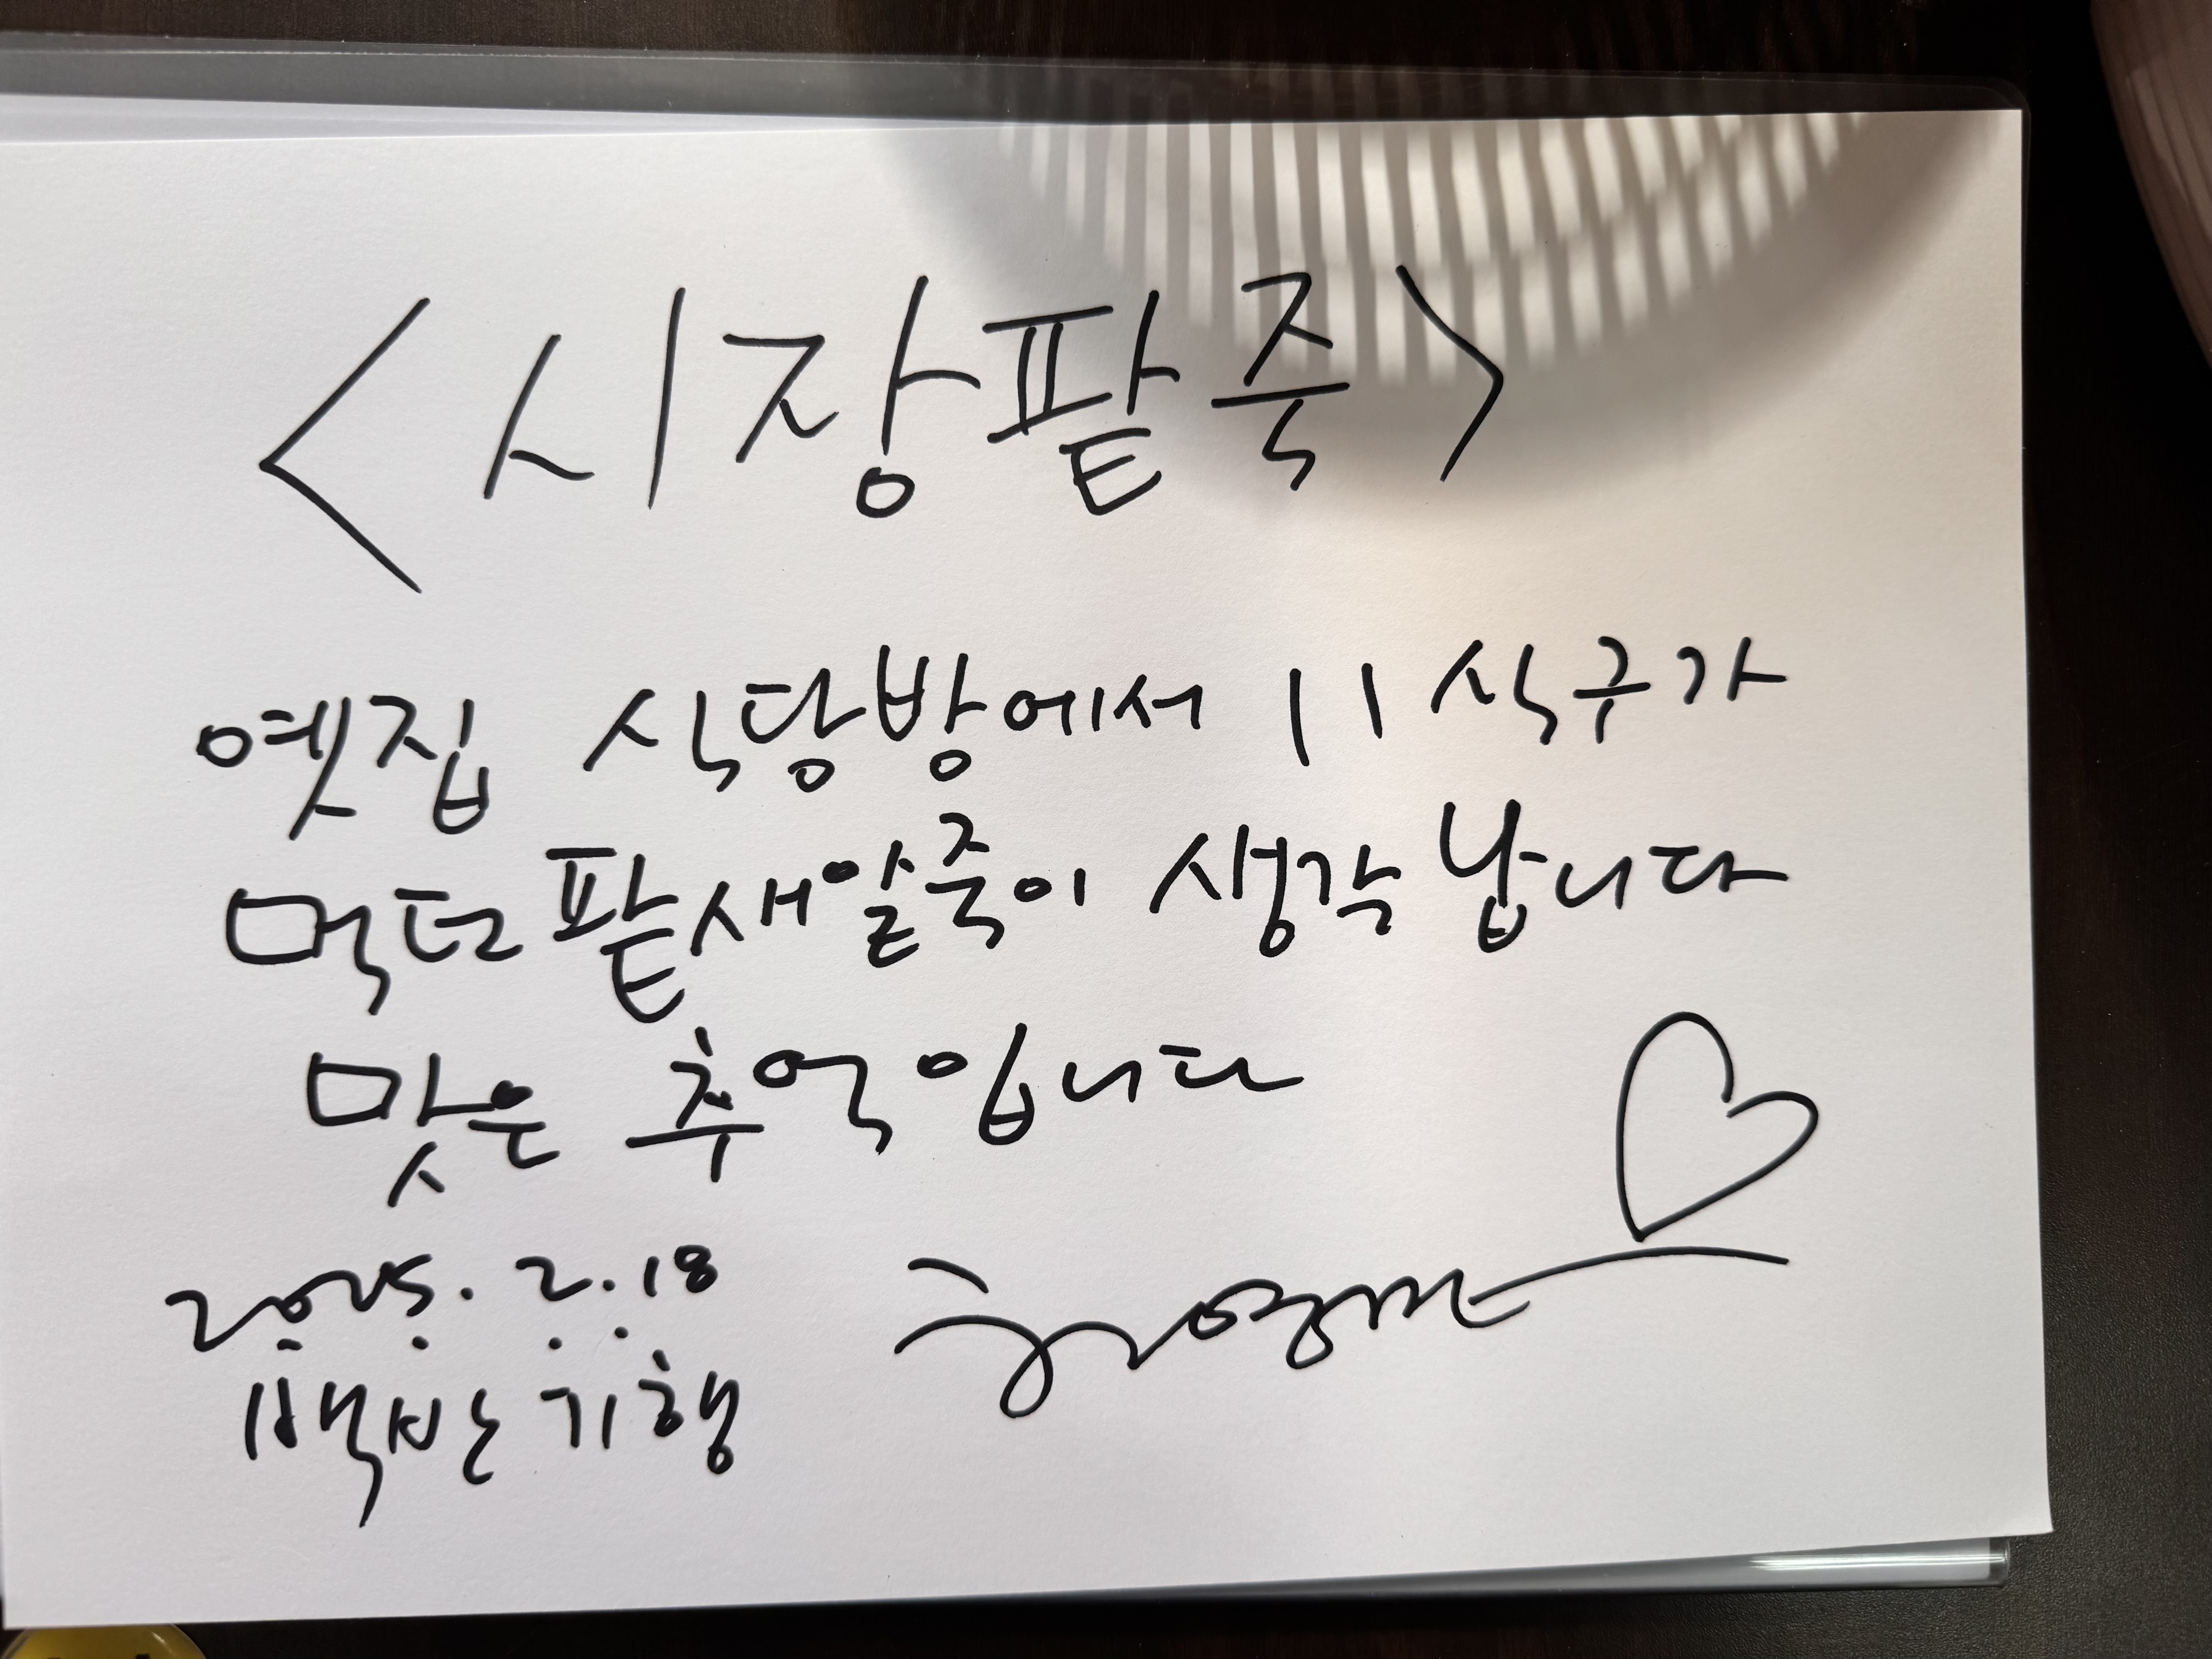 <시장팥죽>
옛집 식당방에서 11 식구가
먹던 팥새알죽이 생각 납니다
맛은 추억입니다
2025. 2. 18
백반 기행